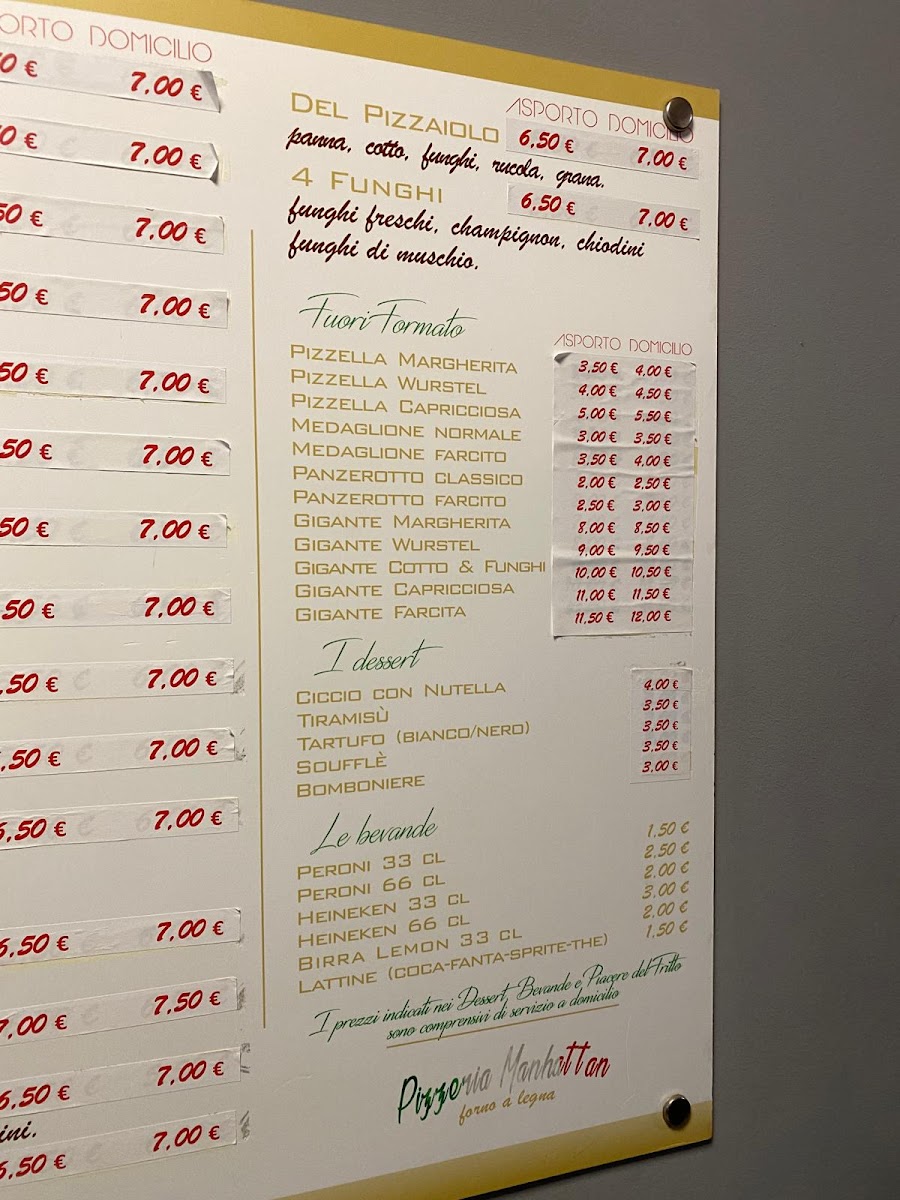 DOMICILIO
7,00 €
7,00 €
50 € 7,00 €
50 € 7,00 €
50 € 7,00 €
50 € 7,00 €
50 € 7,00 €
,50 € 7,00 €
,50 € 7,00 €
,50 € 7,00 €
6,50 € 7,00 €
6,50 € 7,00 €
7,00 € 7,50 €
6,50 € 7,00 €
ini.
6,50 € 7,00 €
ASPORTO DOMICILIO
DEL PIZZAIOLO 6,50 € 7,00 €
panna, cotto, funghi, rucola, grana.
4 FUNGHI 6,50 € 7,00 €
funghi freschi, champignon, chiodini
funghi di muschio.
Fuori Formato
ASPORTO DOMICILIO
PIZZELLA MARGHERITA 3,50 € 4,00 €
PIZZELLA WURSTEL 4,00 € 4,50 €
PIZZELLA CAPRICCIOSA 5,00 € 5,50 €
MEDAGLIONE NORMALE 3,00 € 3,50 €
MEDAGLIONE FARCITO 3,50 € 4,00 €
PANZEROTTO CLASSICO 2,00 € 2,50 €
PANZEROTTO FARCITO 2,50 € 3,00 €
GIGANTE MARGHERITA 8,00 € 8,50 €
GIGANTE WURSTEL 9,00 € 9,50 €
GIGANTE COTTO & FUNGHI 10,00 € 10,50 €
GIGANTE CAPRICCIOSA 11,00 € 11,50 €
GIGANTE FARCITA 11,50 € 12,00 €
I dessert
CICCIO CON NUTELLA 4,00 €
TIRAMISÙ 3,50 €
TARTUFO (BIANCO/NERO) 3,50 €
SOUFFLÈ 3,50 €
BOMBONIERE 3,00 €
Le bevande
PERONI 33 CL 1,50 €
PERONI 66 CL 2,50 €
HEINEKEN 33 CL 2,00 €
HEINEKEN 66 CL 3,00 €
BIRRA LEMON 33 CL 2,00 €
LATTINE (COCA-FANTA-SPRITE-THE) 1,50 €
I prezzi indicati nei Dessert, Bevande e Piacere del Fritto
sono comprensivi di servizio a domicilio
Pizzeria Manhattan
forno a legna